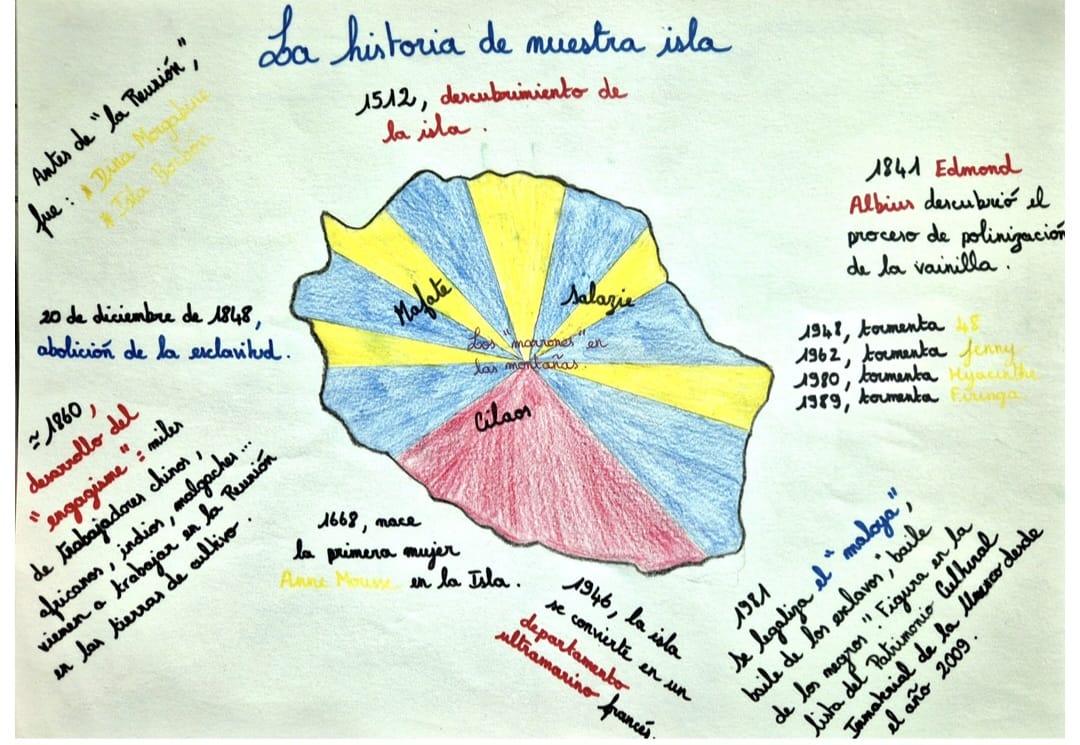 La historia de nuestra isla
Antes de "la Reunión",
fue : * Dina Morgabine
* Isla Borbón
1512, descubrimiento de
la isla.
1841 Edmond
Albius descubrió el
proceso de polinización
de la vainilla.
20 de diciembre de 1848,
abolición de la esclavitud.
Mafate
Salazie
Los "marrones" en
las montañas.
Cilaos
1948, tormenta 48
1962, tormenta Jenny
1980, tormenta Hyacinthe
1989, tormenta Firinga
≃ 1860,
desarrollo del
"engagisme" : miles
de trabajadores chinos,
africanos, indios, malgaches...
vienen a trabajar en la Reunión
en las tierras de cultivo.
1668, nace
la primera mujer
Anne Mousse en la Isla.
1946, la isla
se convierte en un
departamento
ultramarino francés.
1981
se legaliza el "maloya",
baile de los esclavos, "baile
de los negros". Figura en la
lista del Patrimonio Cultural
Inmaterial de la Unesco desde
el año 2009.